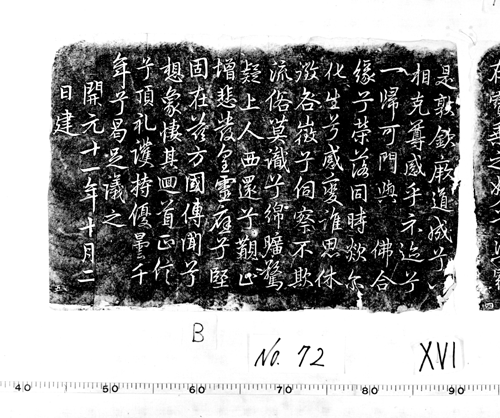 是敦欽厥道咸予小
相克尊感乎示迹兮
一歸可門與 佛合
緣兮榮落同時歘尔
化生兮感變淮思休
徵各徵兮伺察不欺
流俗莫識兮綿曠驚
疑上人西還兮覩此
增悲發皇靈應兮堅
固在茲方國傳聞兮
想象悽其迴首正信
兮頂礼護持優曇千
年兮曷足議之
開元十一年十月二
日建
B
No. 72
XVI
40 50 60 70 80 90